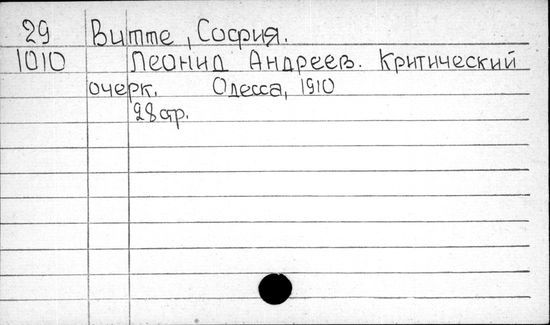 29 Витте, София.
1010 Леонид Андреев. Критический
очерк. Одесса, 1910
28 стр.